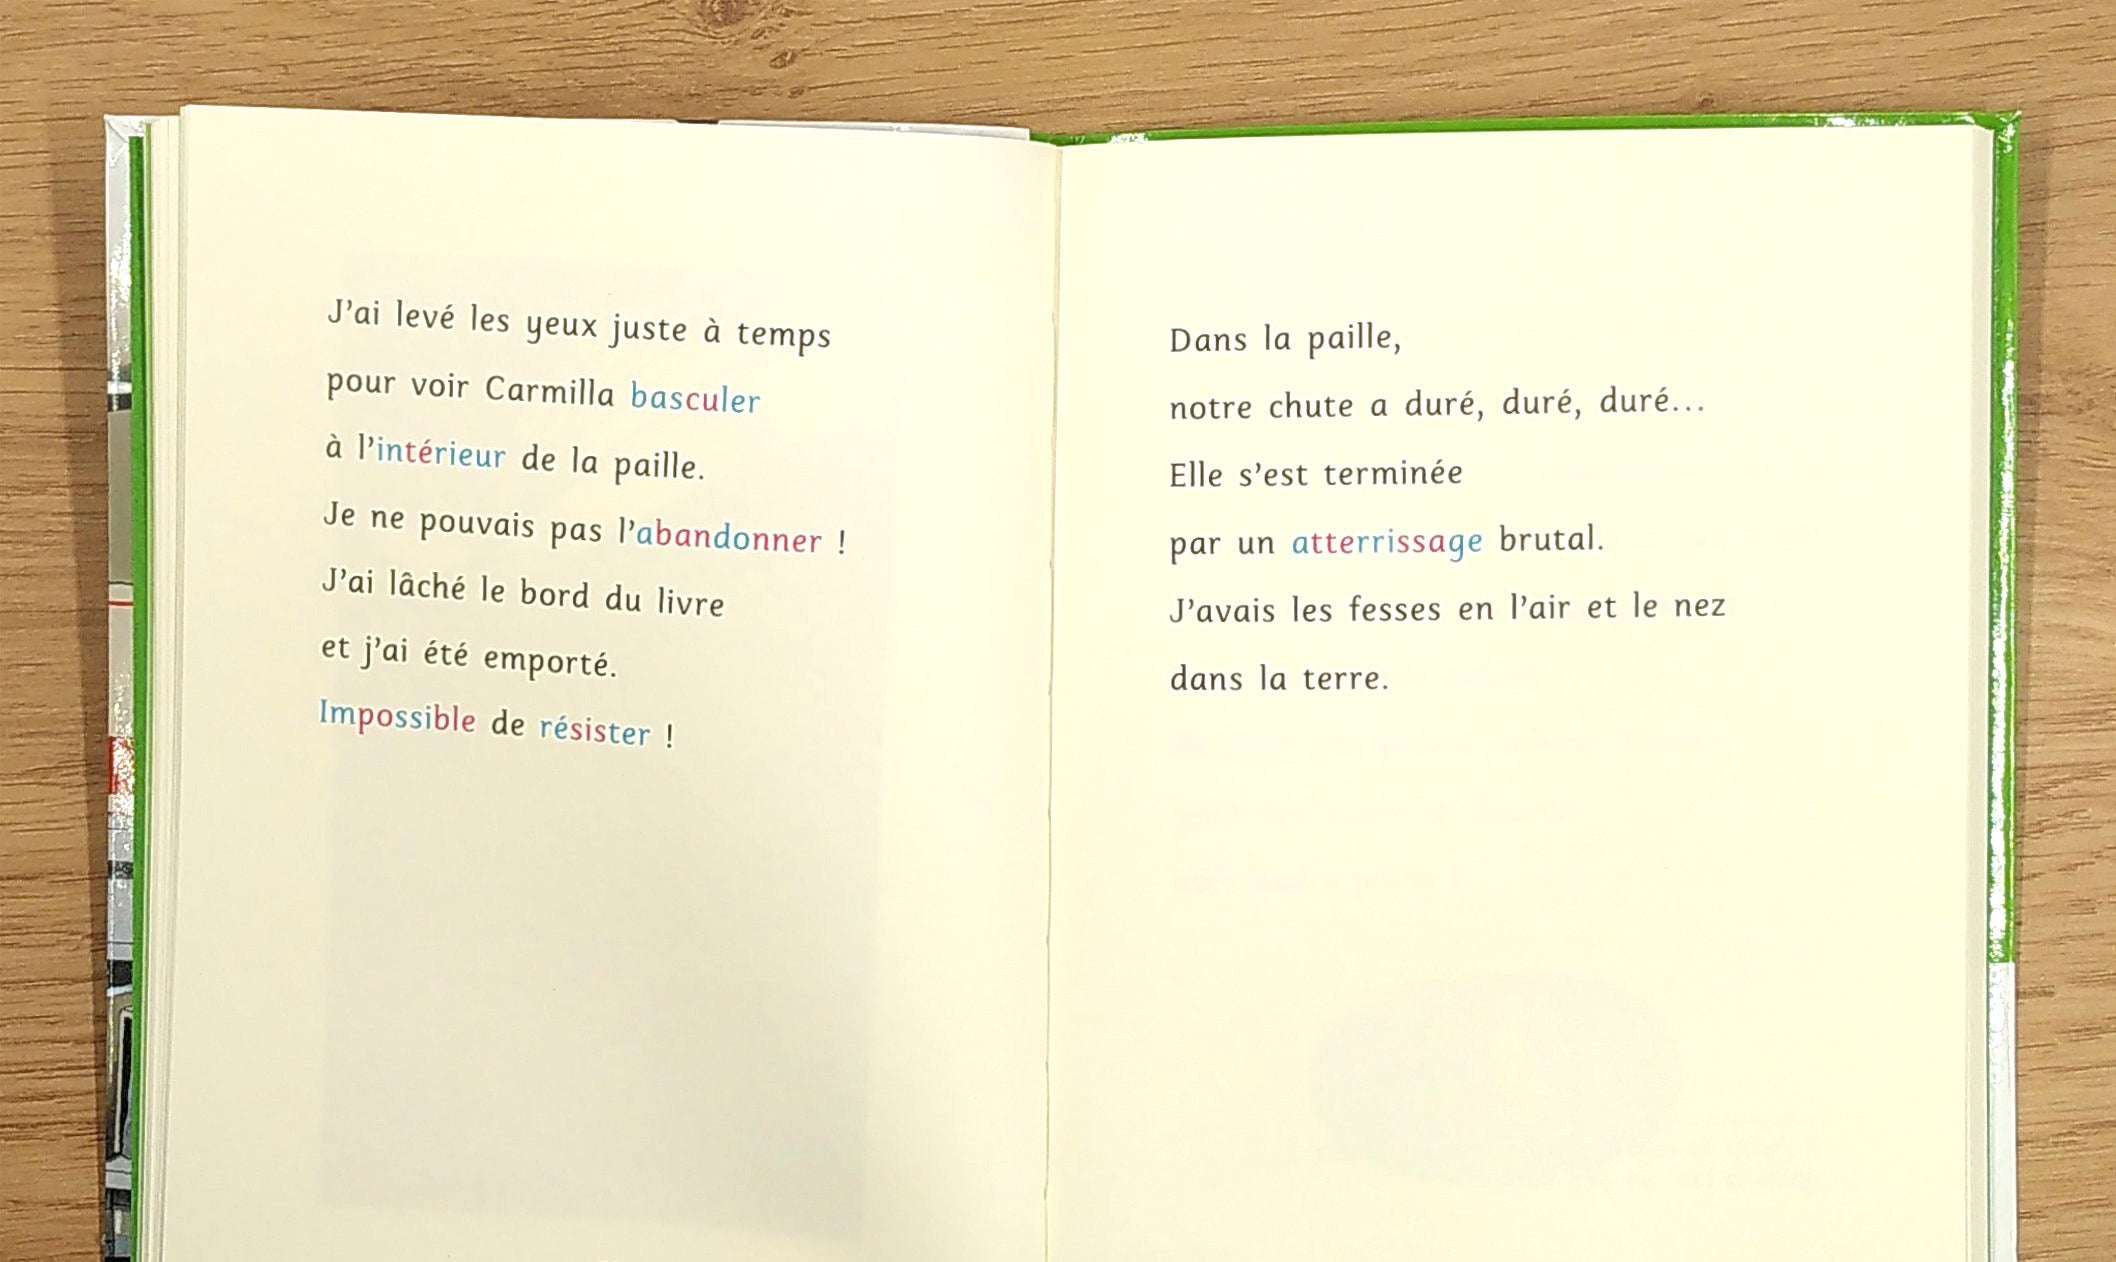 J’ai levé les yeux juste à temps
pour voir Carmilla basculer
à l’intérieur de la paille.
Je ne pouvais pas l’abandonner !
J’ai lâché le bord du livre
et j’ai été emporté.
Impossible de résister !
Dans la paille,
notre chute a duré, duré, duré...
Elle s’est terminée
par un atterrissage brutal.
J’avais les fesses en l’air et le nez
dans la terre.